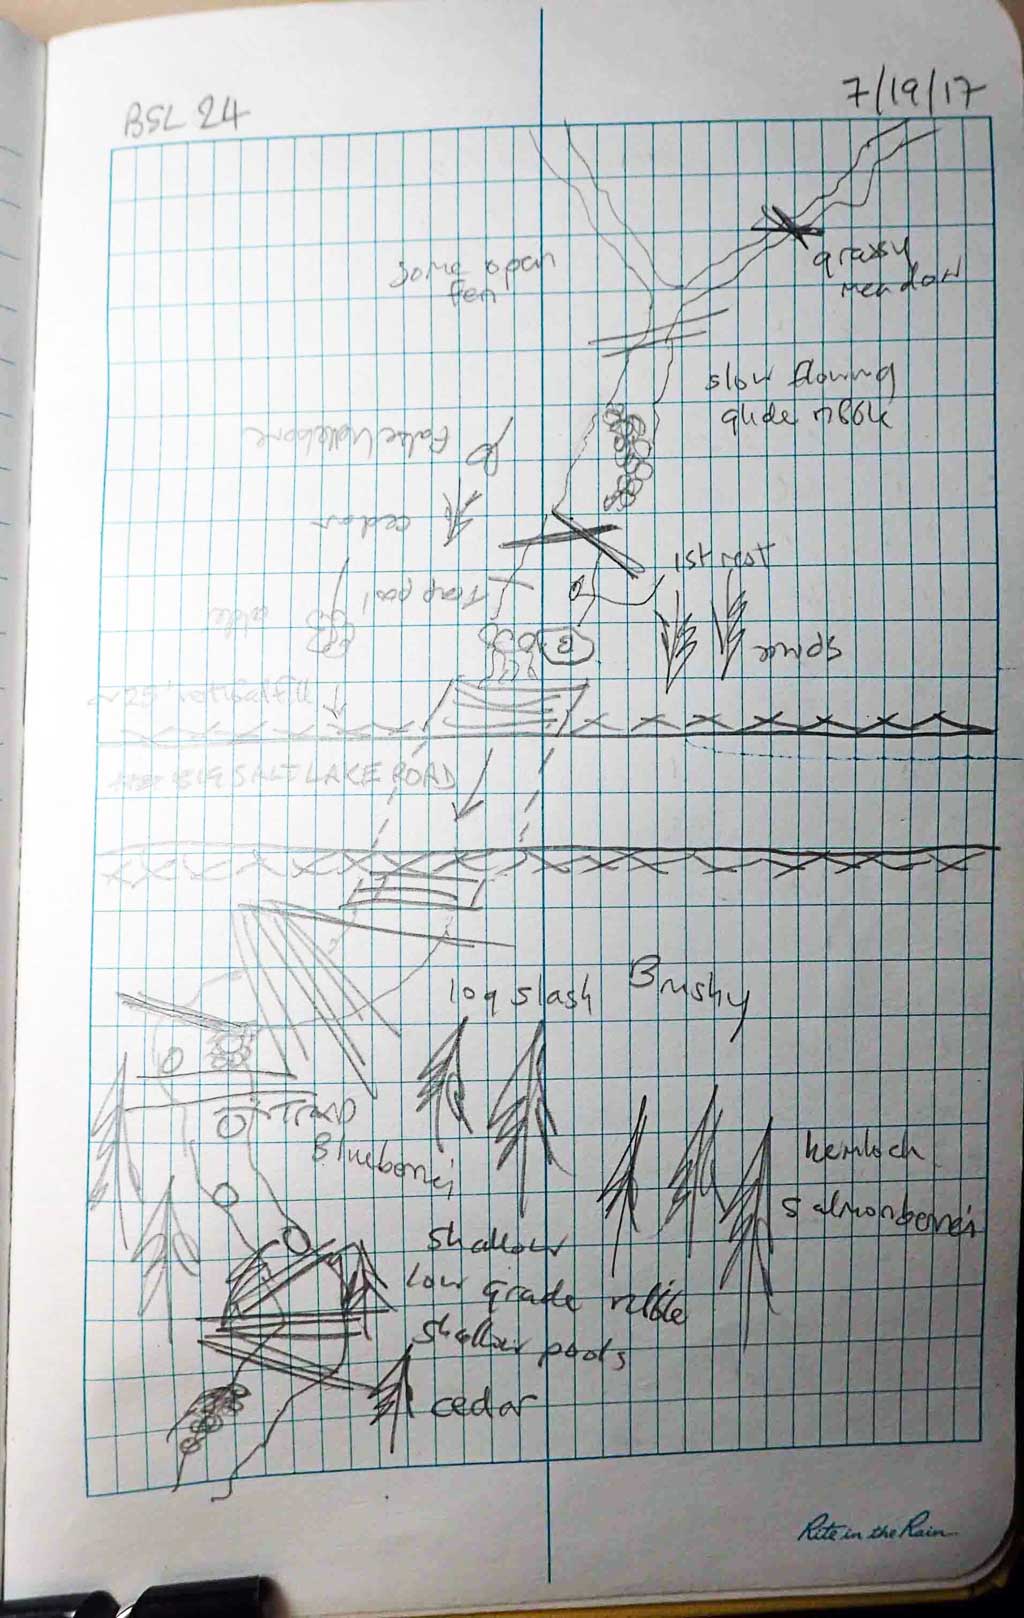 BSL 24
7/19/17
some open
fen
grassy
meadow
slow flowing
glide riffle
False Hellebore
cedar
1st rest
Trap pool
alder
spruce
25' vertical fill
BIG SALT LAKE ROAD
log slash
Brushy
Blueberri
hemlock
salmonberri
shallow
low grade riffle
shallow pools
cedar
Rite in the Rain